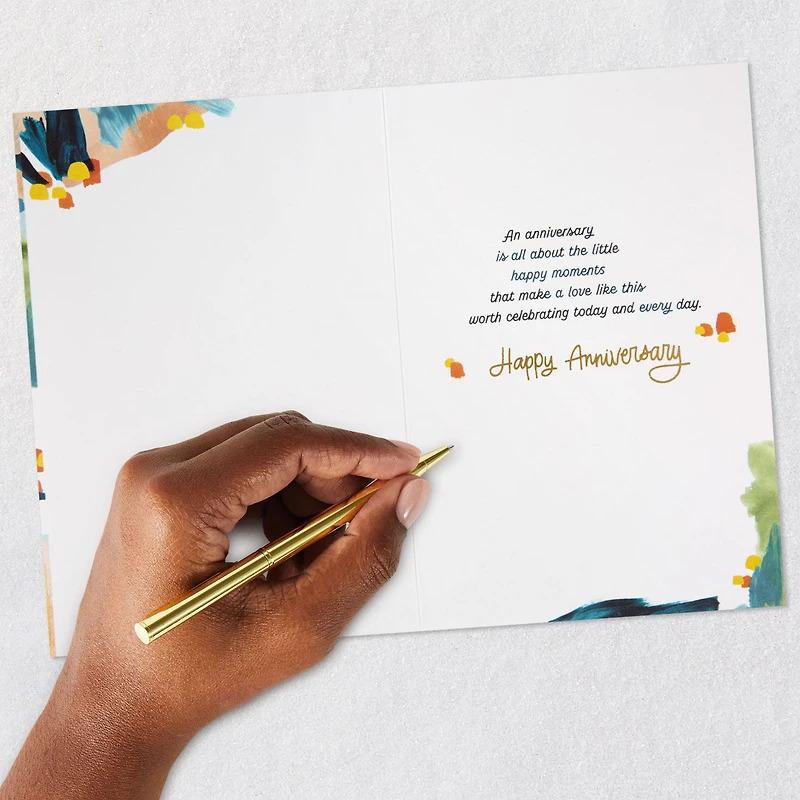 An anniversary
is all about the little
happy moments
that make a love like this
worth celebrating today and every day.
Happy Anniversary